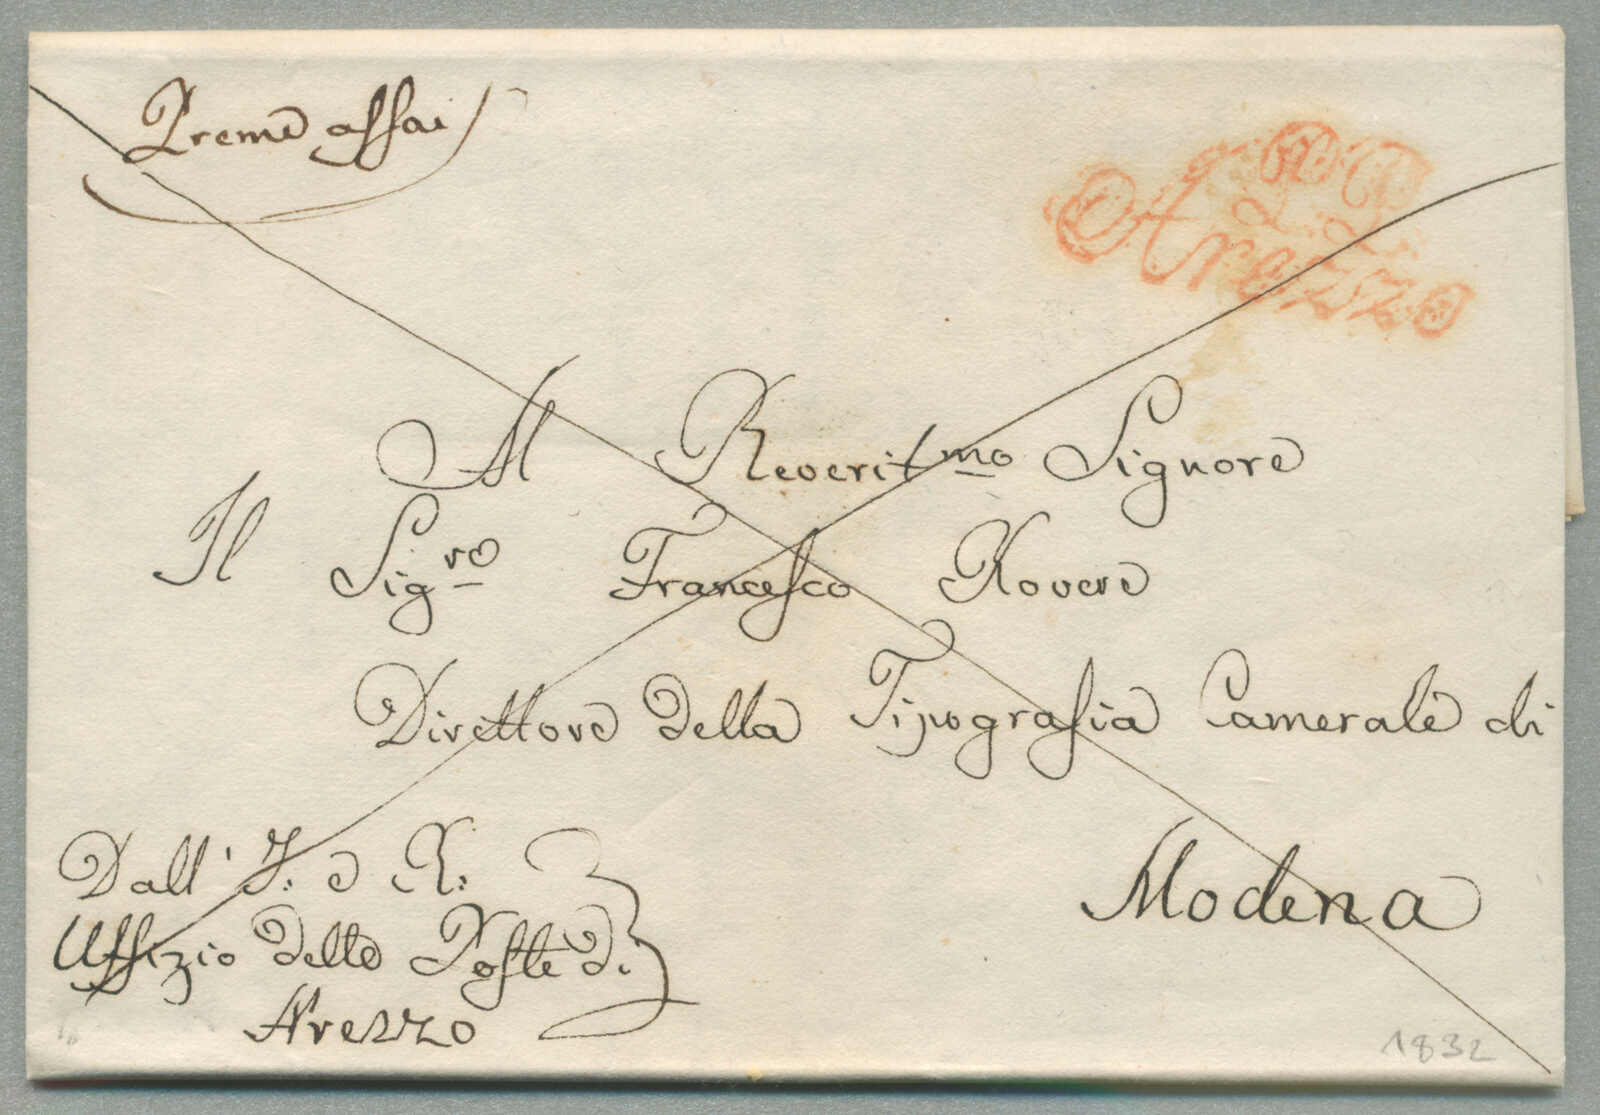 Preme assai
P. P.
Arezzo
Al Reverit.mo Signore
Il Sig.re Francesco Rovere
Direttore della Tipografia Camerale di
Modena
Dall' I: e R:
Uffizio delle Poste di
Arezzo
1832